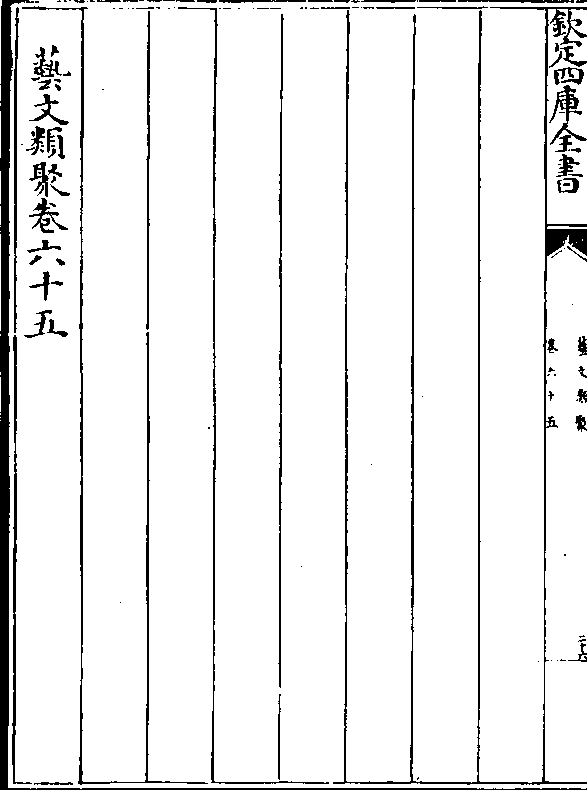 欽定四庫全書
藝文類聚
卷六十五
二十六
藝文類聚卷六十五